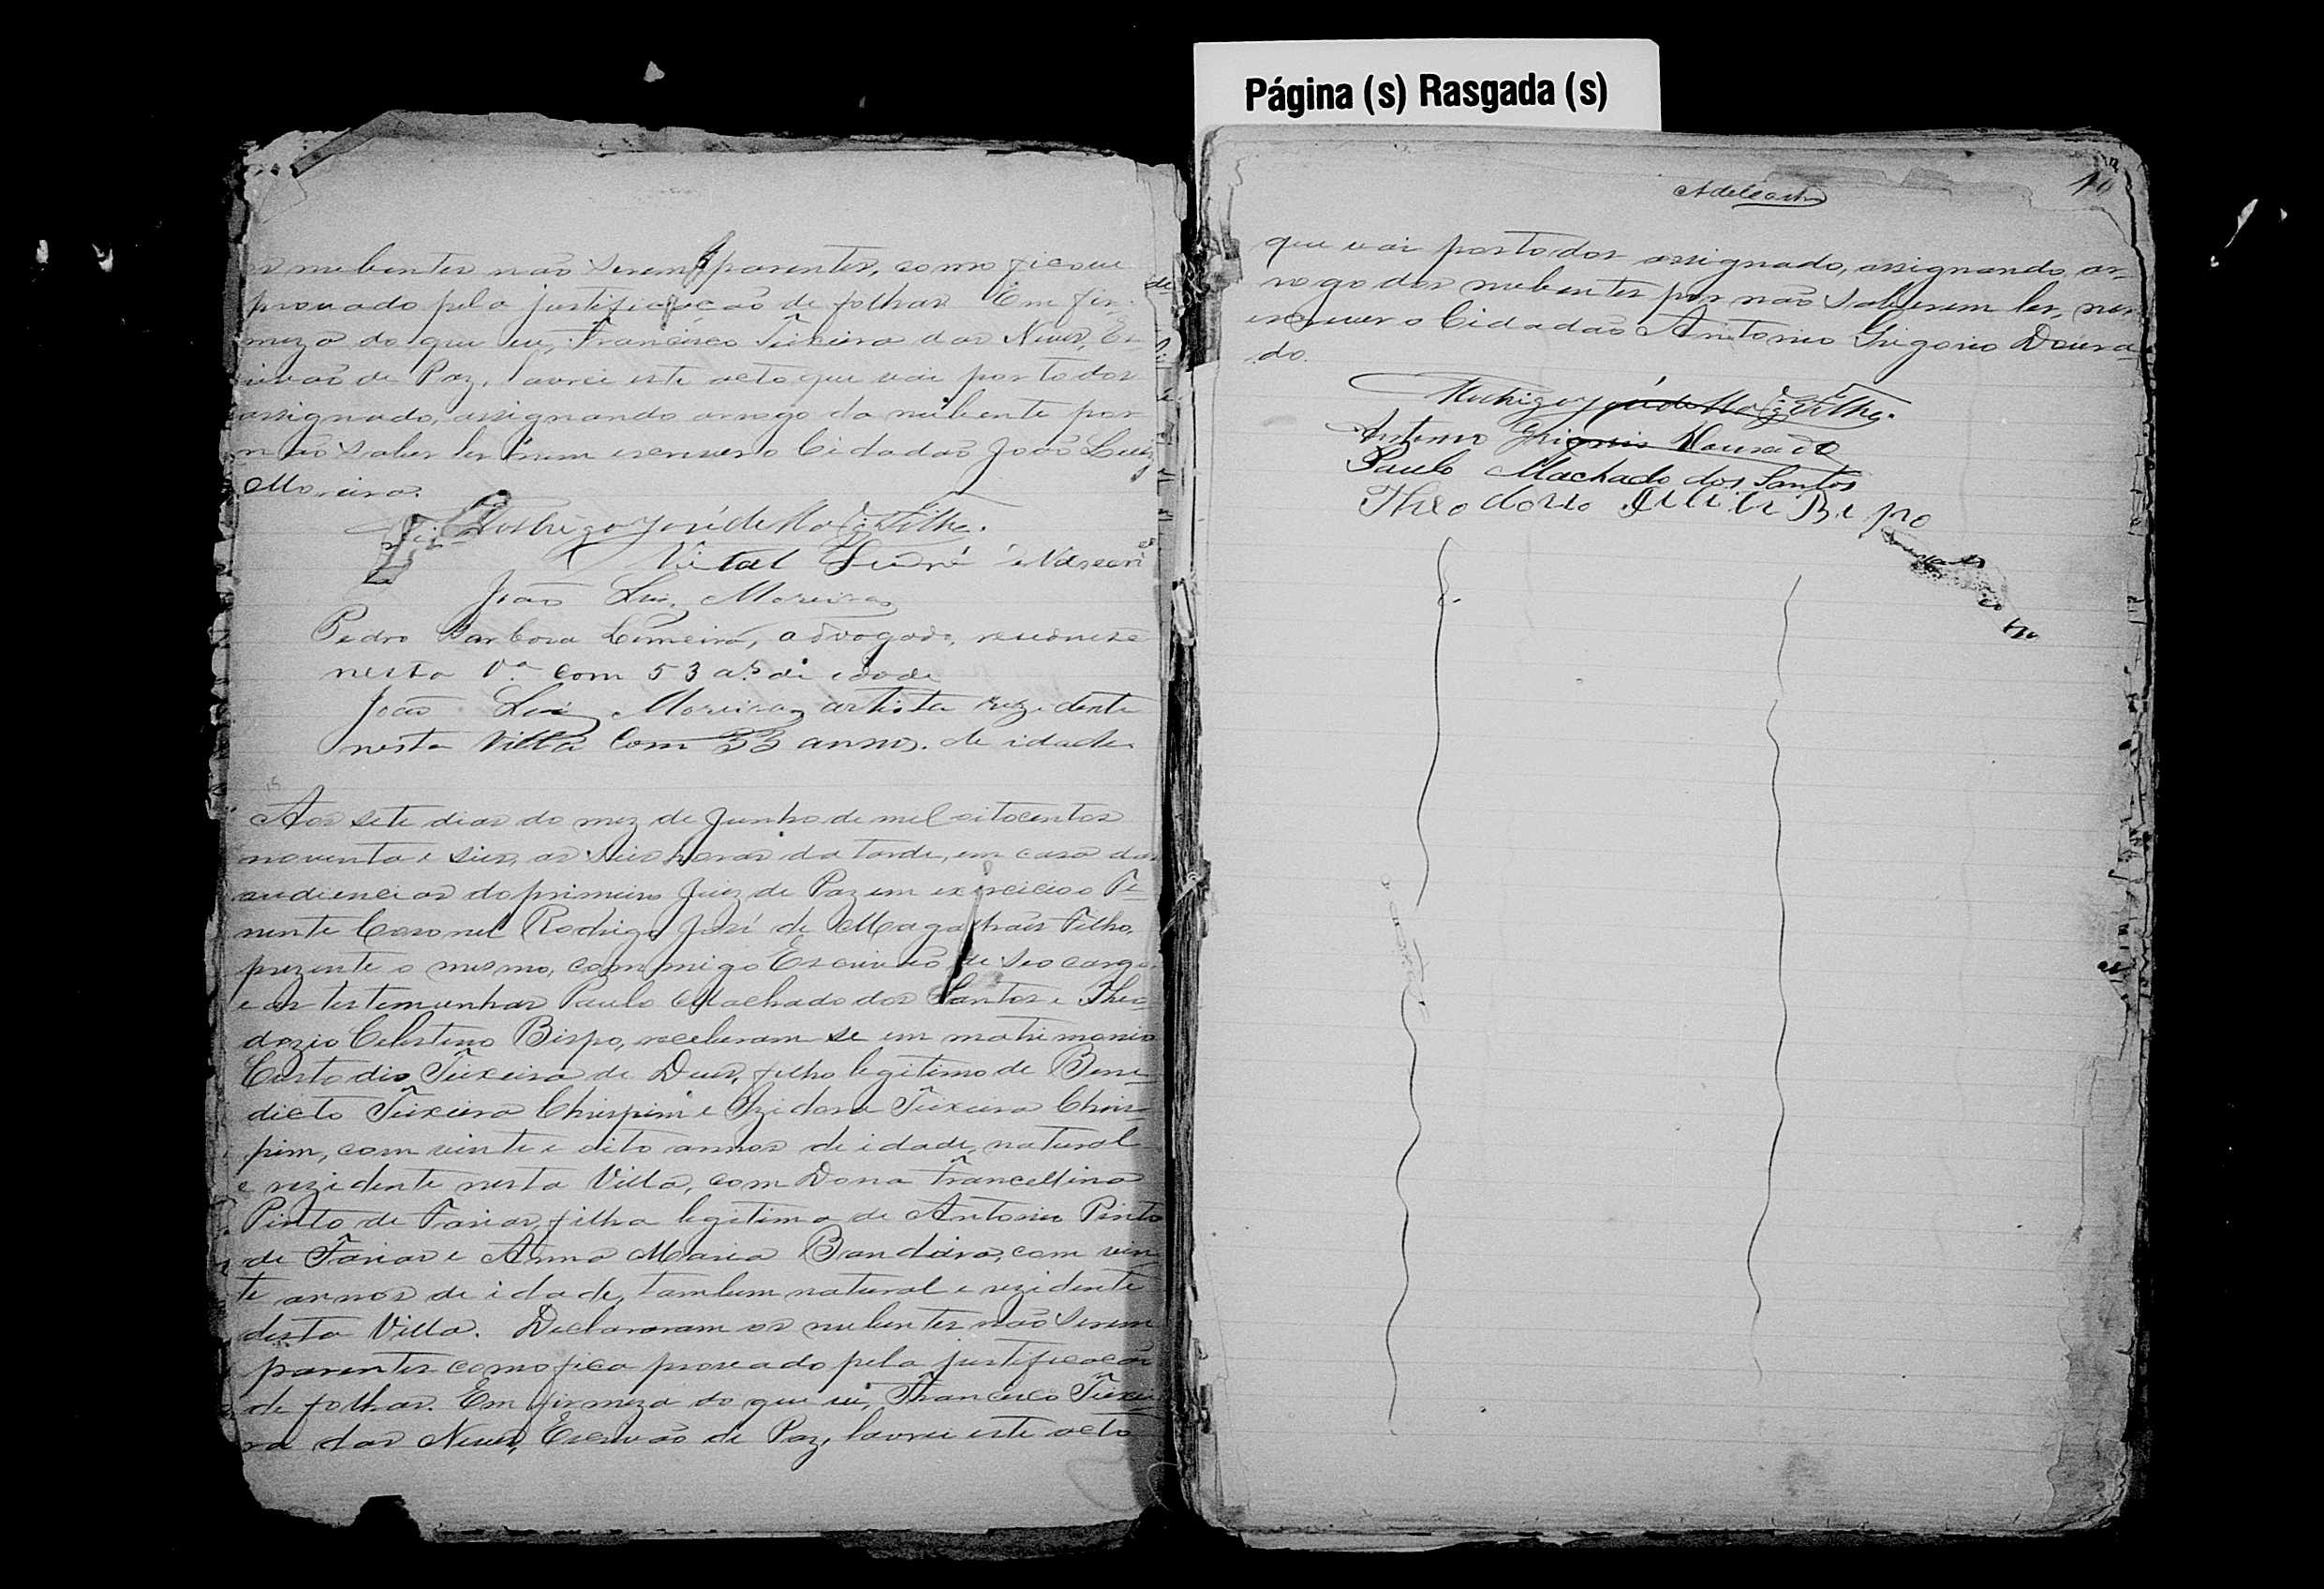 os nubentes não serem parentes, como ficou
provado pela justificação de folhas. Em fir-
meza do que eu, Francisco Teixeira das Neves, Es-
crivão de Paz, lavrei este acto que vai por todos
assignado, assignando arrogo da nubente por
não saber ler nem escrever o Cidadão João Luiz
Moreira.
Rodrigo José de Mag.es Filho.
Vital
João Luiz Moreira
Pedro Barbosa, advogado, residente
nesta V.a com 53 a.s de idade
João Luiz Moreira artista rezidente
nesta Villa Com 33 annos. de idade
Aos sete dias do mez de Junho de mil oitocentos
noventa e seis, as seis horas da tarde, em casa das
audiencias do primeiro Juiz de Paz em exercicio o Te-
nente Coronel Rodrigo José de Magalhães Filho,
prezente o mesmo, commigo Escrivão de seo cargo
e as testemunhas Paulo Machado dos Santos e Theo-
dozio Celestino Bispo, receberam se em matrimonio
Custodio Teixeira de Deus, filho legitimo de Bene-
dicto Teixeira Chrispim e Izidora Teixeira Chris-
pim, com vinte e oito annos de idade, natural
e rezidente nesta Villa, com Dona Francellina
Pinto de Farias, filha legitima de Antonio Pinto
de Farias e Anna Maria Bandeira, com vin-
te annos de idade, tambem natural e rezidente
desta Villa. Declararam os nubentes não serem
parentes como fica provado pela justificação
de folhas. Em firmeza do que eu, Francisco Teixei-
ra das Neves, Escrivão de Paz, lavrei este acto
Página (s) Rasgada (s)
que vai por todos assignado, assignando ar-
rogo dos nubentes por não saberem ler, nem
escrever o Cidadão Antonio Grigorio Doura-
do.
Rodrigo José de Mag.es Filho.
Antonio Grigorio Dourado
Paulo Machado dos Santos
Theodozio Bispo